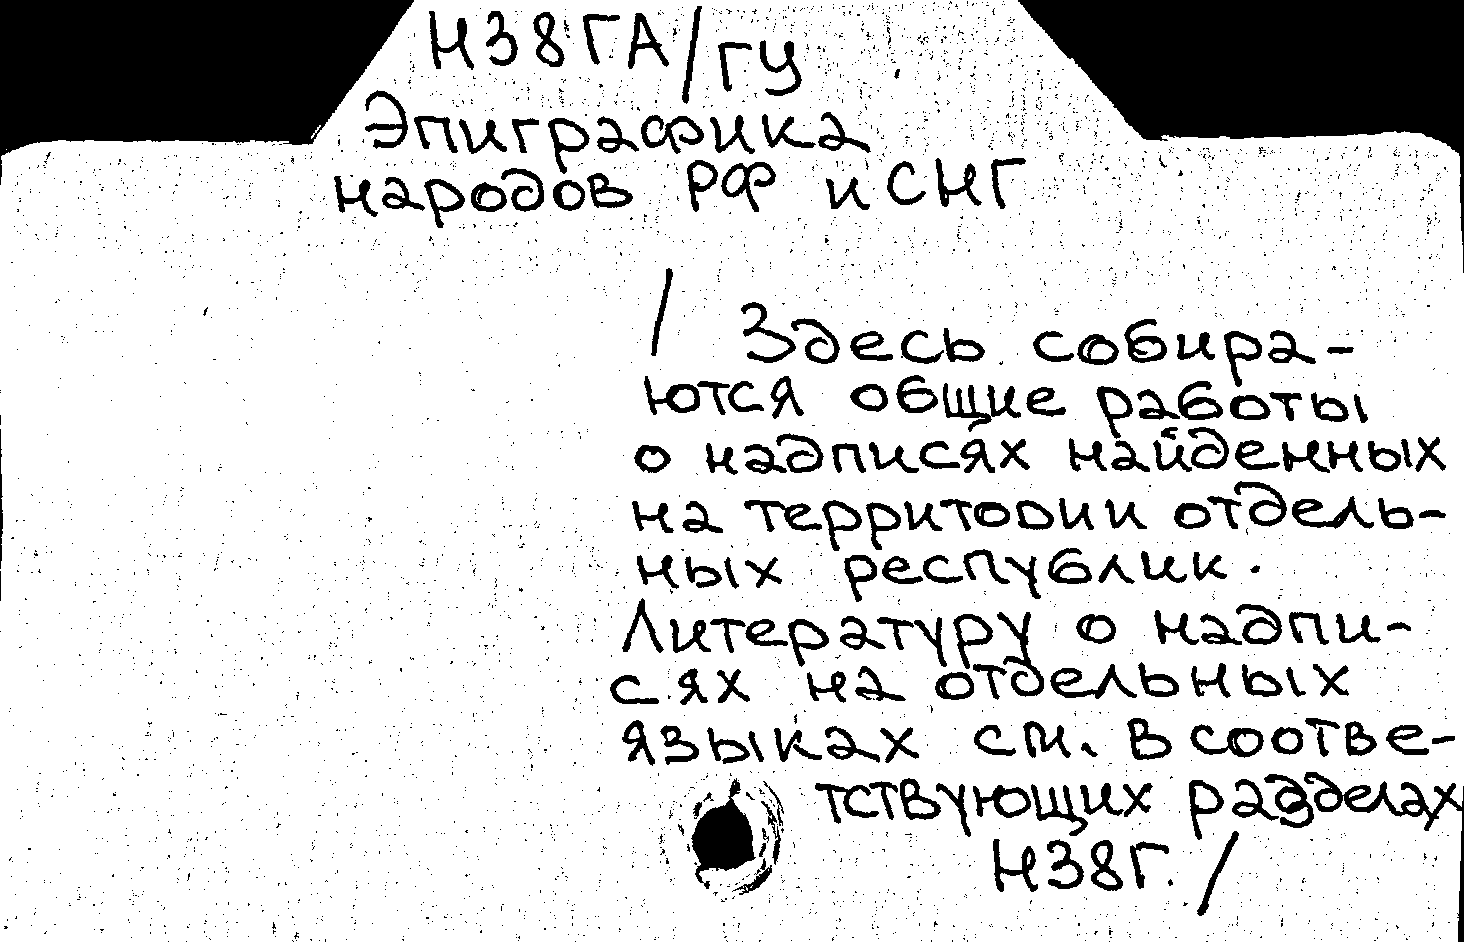 Н38ГА/ГУ
Эпиграфика
народов РФ и СНГ
/ Здесь собира-
ются общие работы
о надписях найденных
на территории отдель-
ных республик.
Литературу о надпи-
сях на отдельных
языках см. в соотве-
тствующих разделах
Н38Г. /